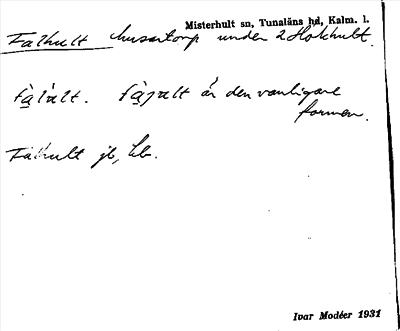 Misterhult sn, Tunaläns hd, Kalm. l.
Fälhult husartorp under 2 Hökhult.
är den vanligare
formen.
Fähult jb,
Ivar Modéer 1931